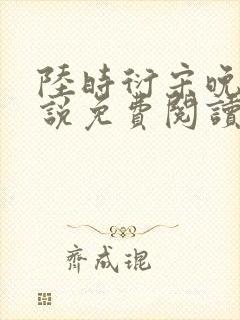 陸時衍宋晚
說免費閱讀
齊成琨